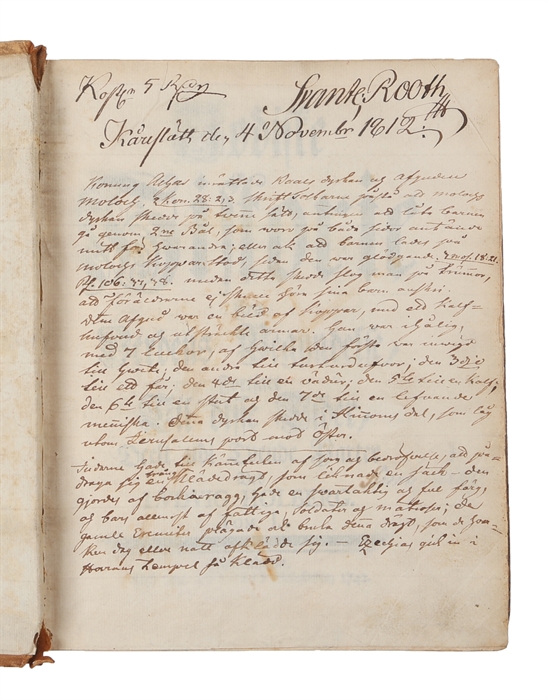 Kostn 5 Rdr
Svante Rooth
Kårestäth den 4 Novembr 1812.
Konung Achas inrättade Baals dyrkan och afguden
Moloch, 2 Kon. 28: 2, 3. Skrift Lärkarne påstå att Molochs
dyrkan skedde på tvenne sätt, antingen att låta barnen
gå genom 2ne Bål, som woro på båda sidor antände
mitt för hwarandra; eller ock att barnen lades på
Molochs Kopparstod, sedan den war glödgande. 3 Mos. 18: 21.
Ps. 106: 37, 38. under detta skedde slog man på trummor,
att föräldrarne ej skulle höra sina barn
Denne Afgud war en bild af koppar, med ett kalf-
hufvud och utsträckta armar. Han war ihålig,
med 7 luckor, af hwilka den första war inrättad
till hwete; den andra till turturdufvor; den 3dje
till ett får; den 4de till en wädur; den 5te till en kalf;
den 6te till en stut och den 7de till en lefvande
menniska. Denna dyrkan skedde i Hinnoms dal, som låg
utom Jerusalems port mot Öster.
Judarne hade till kännetecken af sorg och bedröfvelse, att på-
draga sig en trång klädedragt, som liknade en säck - den
gjordes af bockaragg, hade en swartaktig och ful färg,
och bars allenast af fattiga, soldater och matroser; de
gamle Eremiter plägade ock bruka denna dragt, som de hwar-
ken dag eller natt afklädde sig. - Ezechias gick in i
Herrans tempel så klädd.